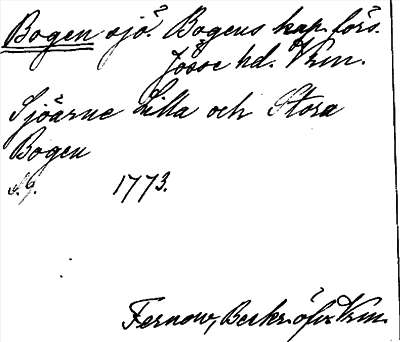 Bogen sjö. Bogens kap. förs.
Jösse hd. Vrm.
Sjöarne Lilla och Stora
Bogen
S. 9. 1773.
Fernow, Beskr. öfv. Vrm.